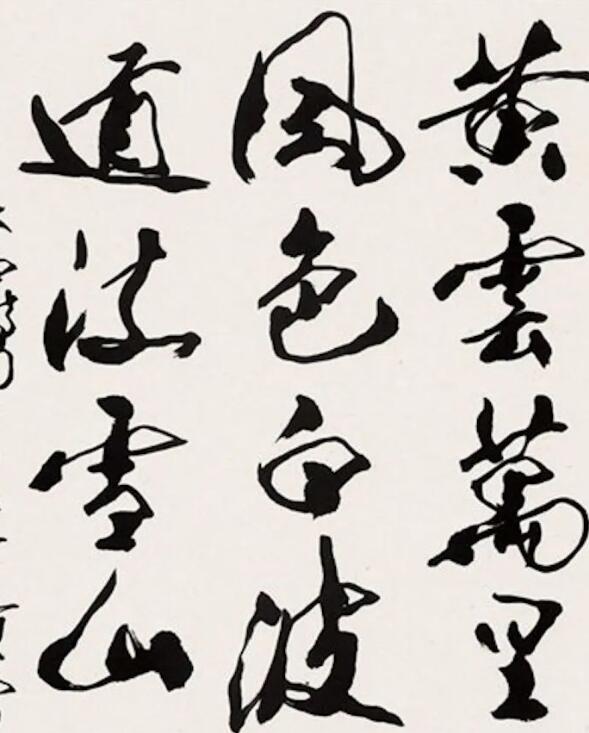 黄雲萬里
風色白波
道流雪山